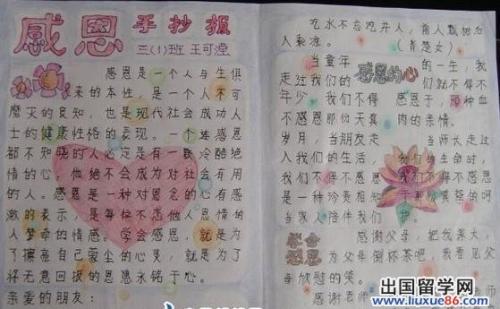 感恩 手抄报
三(1)班 王可滢
感恩是一个人与生俱
来的本性，是一个人不可
磨灭的良知，也是现代社会成功人
士的健康性格的表现。一个连感恩
都不知晓的人必定是有一颗冷酷绝
情的心，他绝不会成为对社会有用
的人。感恩是一种对恩惠的心有感
激的表示，是每位不忘他人恩情的
人萦牵的情感。学会感恩，就是为
了擦亮自己蒙尘的心灵，就是为了
将无意回报的恩惠永铭于心。
亲爱的朋友：
吃水不忘挖井人，前人栽树后
人乘凉。
当童年 的一生，我
走过我们的 感恩的心 们就不得不
年少，我们不得 感恩于，那种血
不感恩那份天真 肉的亲情。
岁月，当朋友走 当师长走过
入我们的生活， 我们的生命时，
我们不得不感恩 我们不得不感恩
是一种珍贵相知
当家人陪伴我们
学会感恩
感谢父母，把我养大，
为父母倒杯茶吧，我看见父
母欣慰的笑。
感谢老师
出国留学网
www.liuxue86.com